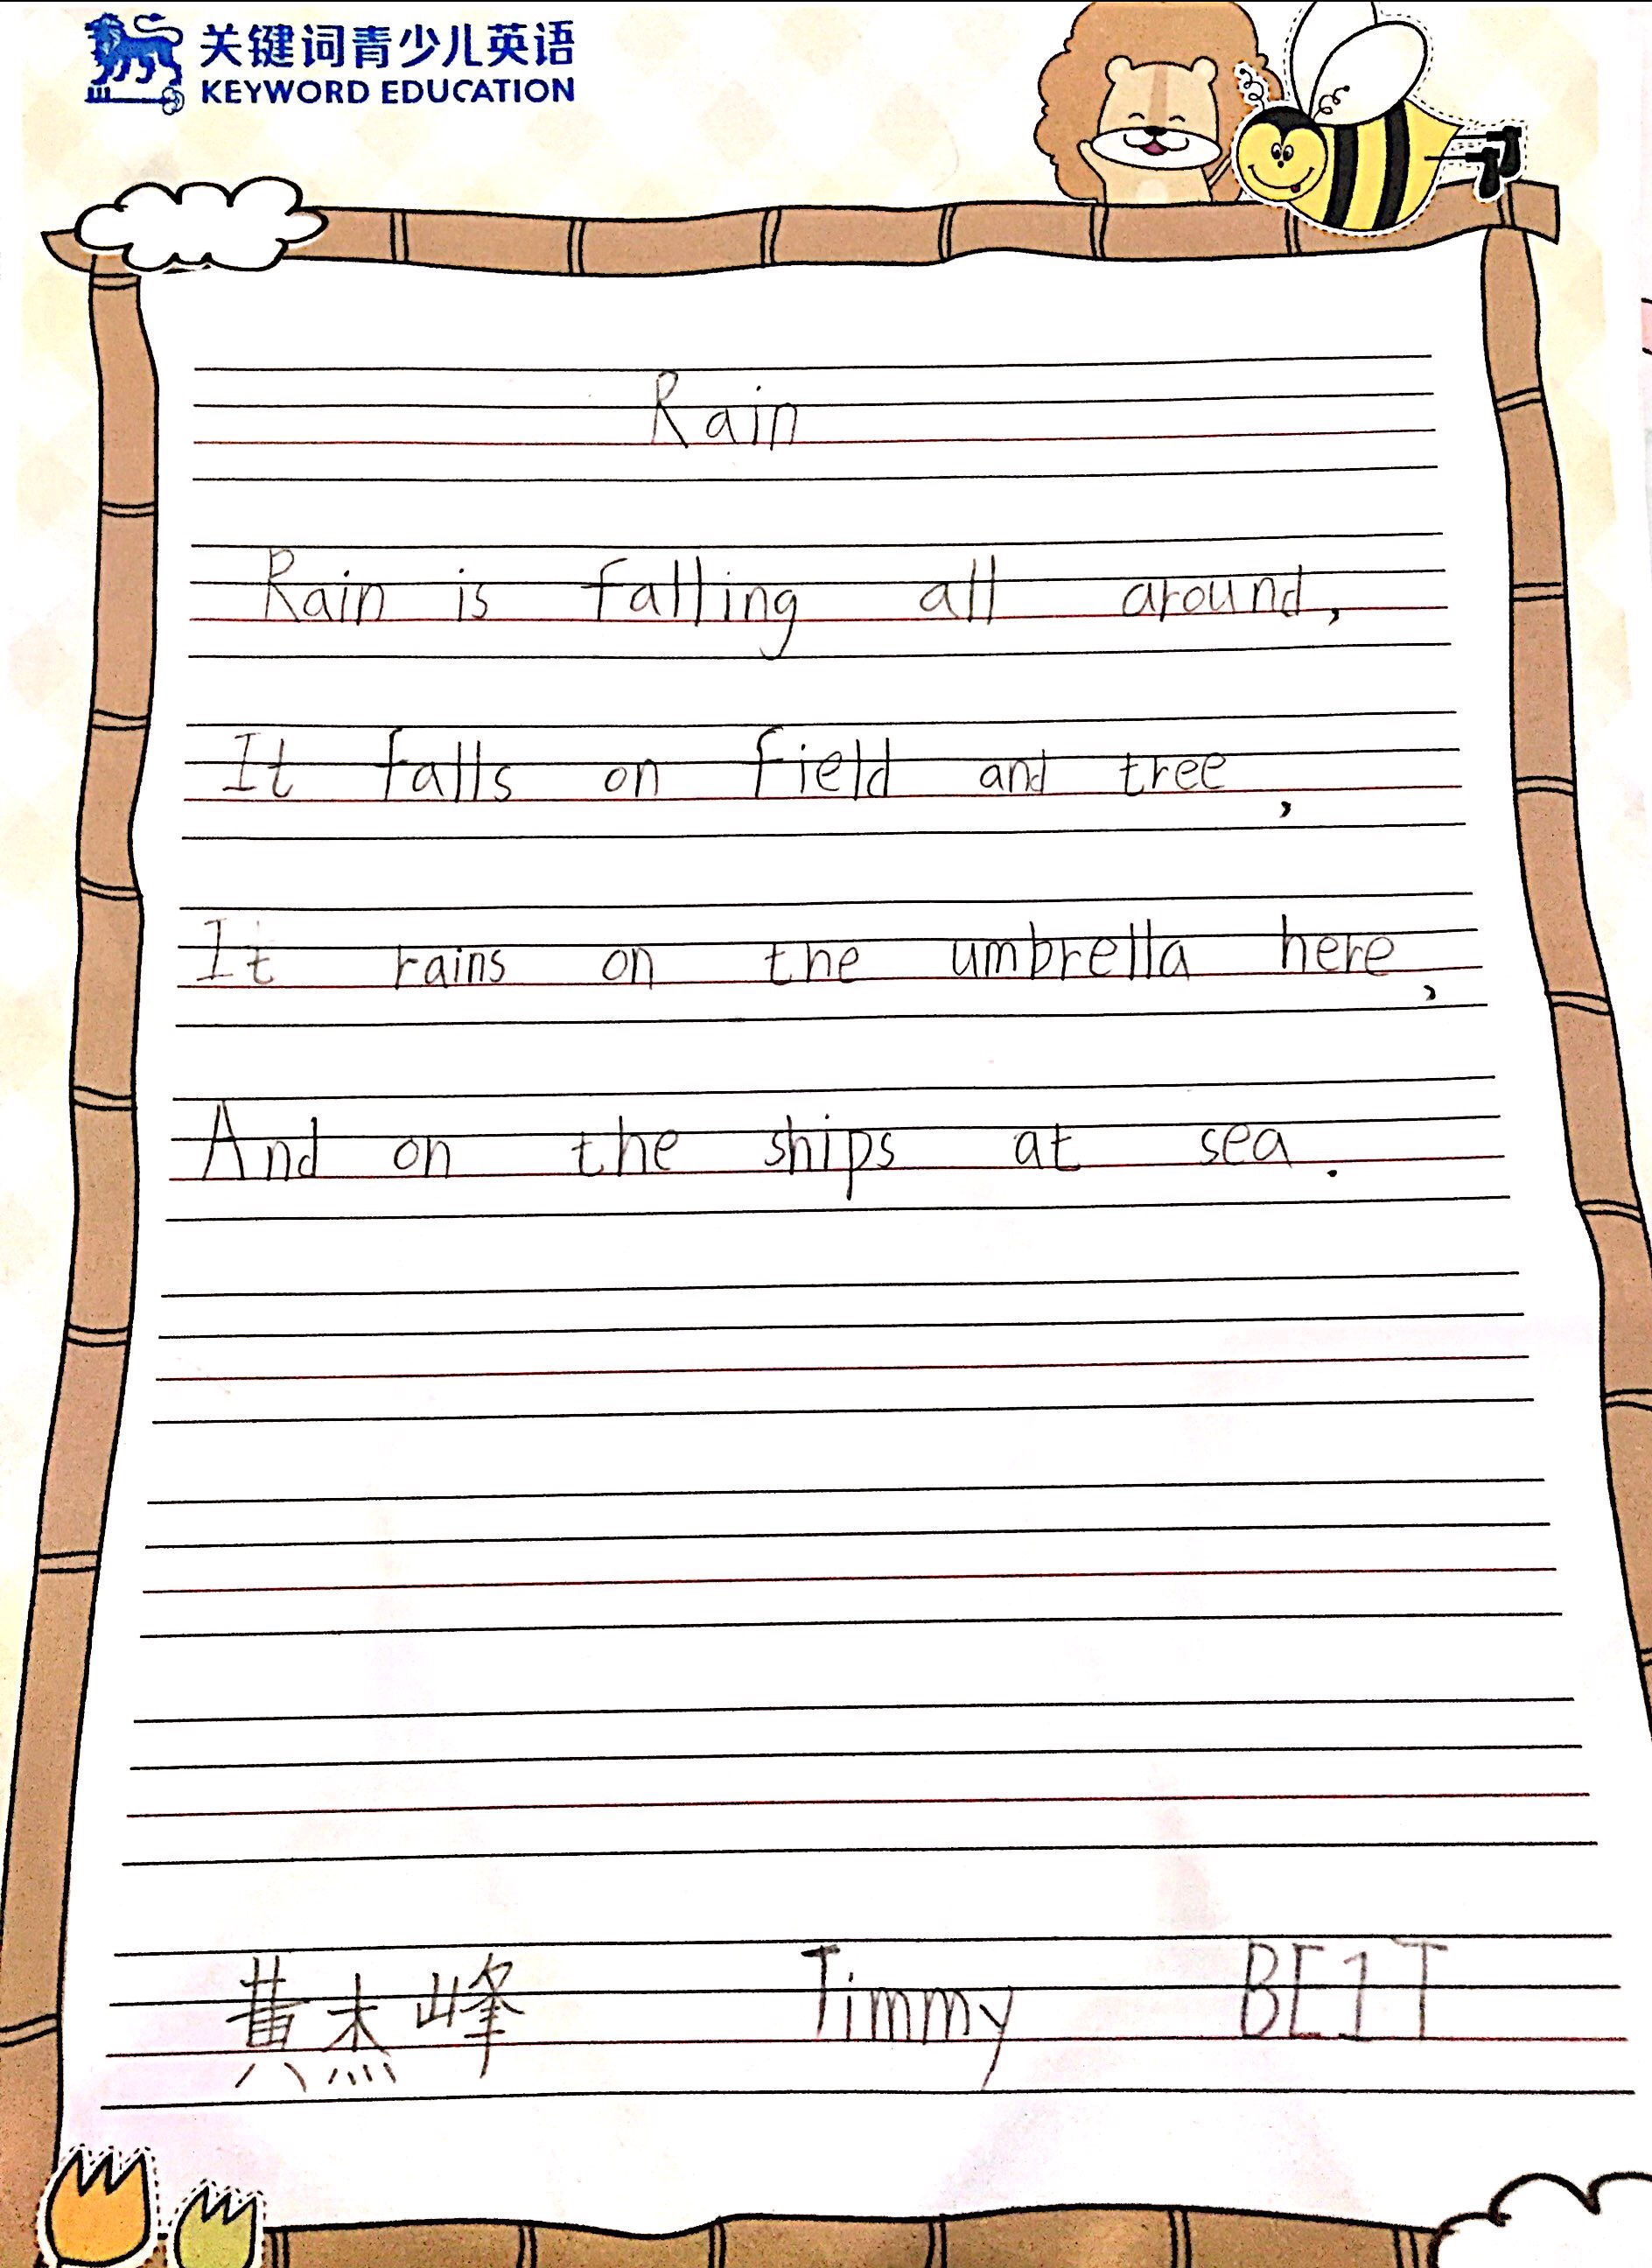 关键词青少儿英语
KEYWORD EDUCATION
Rain
Rain is falling all around,
It falls on field and tree,
It rains on the umbrella here,
And on the ships at sea.
黄杰峰 Timmy BE1T